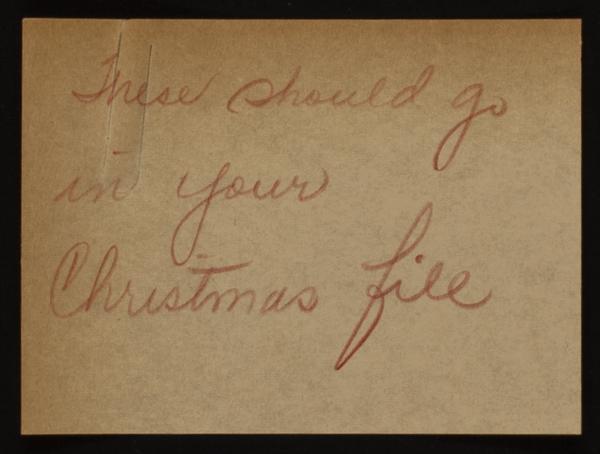 These should go
in your
Christmas file